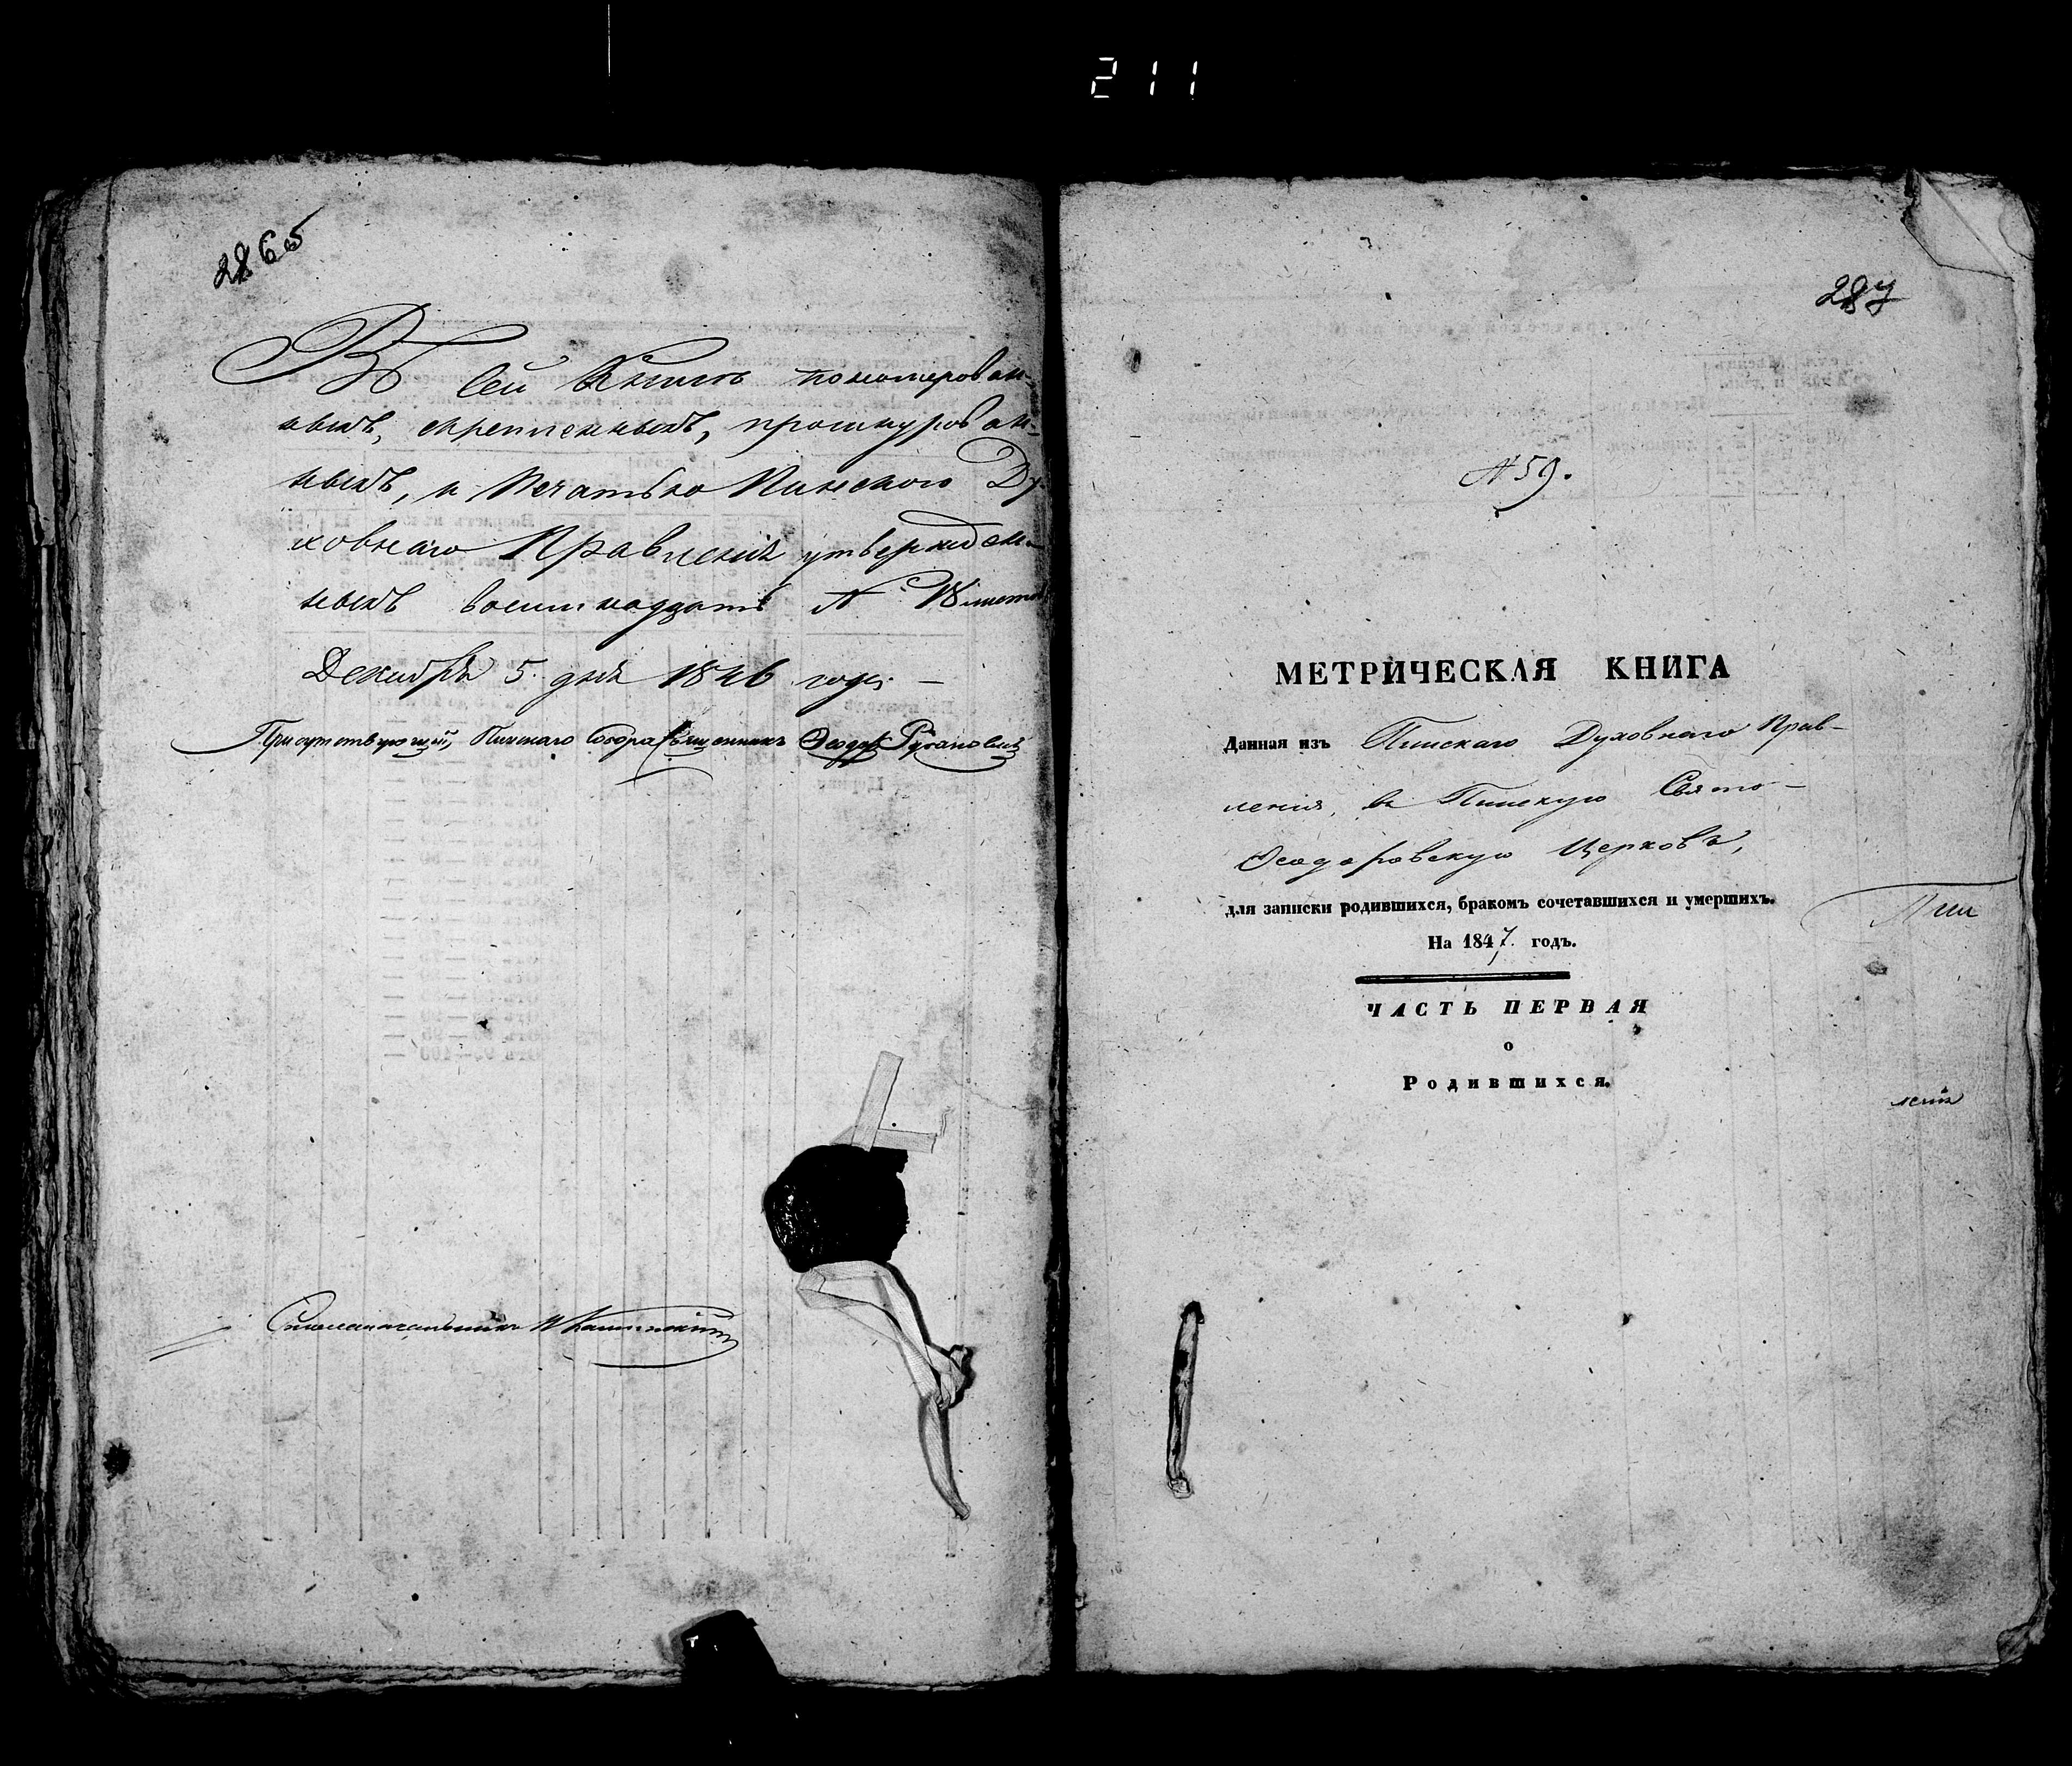 211
286об
Въ сей Книгѣ пономерован-
ныхъ, скрепленныхъ, прошнурован-
ныхъ, и печатью Пинского Ду
ховнаго Правленія утвержден-
ныхъ восимнадцать № 18 листовъ
Декабря 5. дня 1846 года —
Присутствующій, Пинскаго Собора Священникъ Ѳеодоръ
Столоначальникъ
287
№ 59.
МЕТРИЧЕСКАЯ КНИГА
Данная изъ Пинскаго Духовнаго Прав-
ленія, въ Пинскую Свято-
Ѳеодоровскую Церковь,
для записки родившихся, бракомъ сочетавшихся и умершихъ.
Пин
На 1847. годъ.
ЧАСТЬ ПЕРВАЯ
о
Родившихся.
ленія